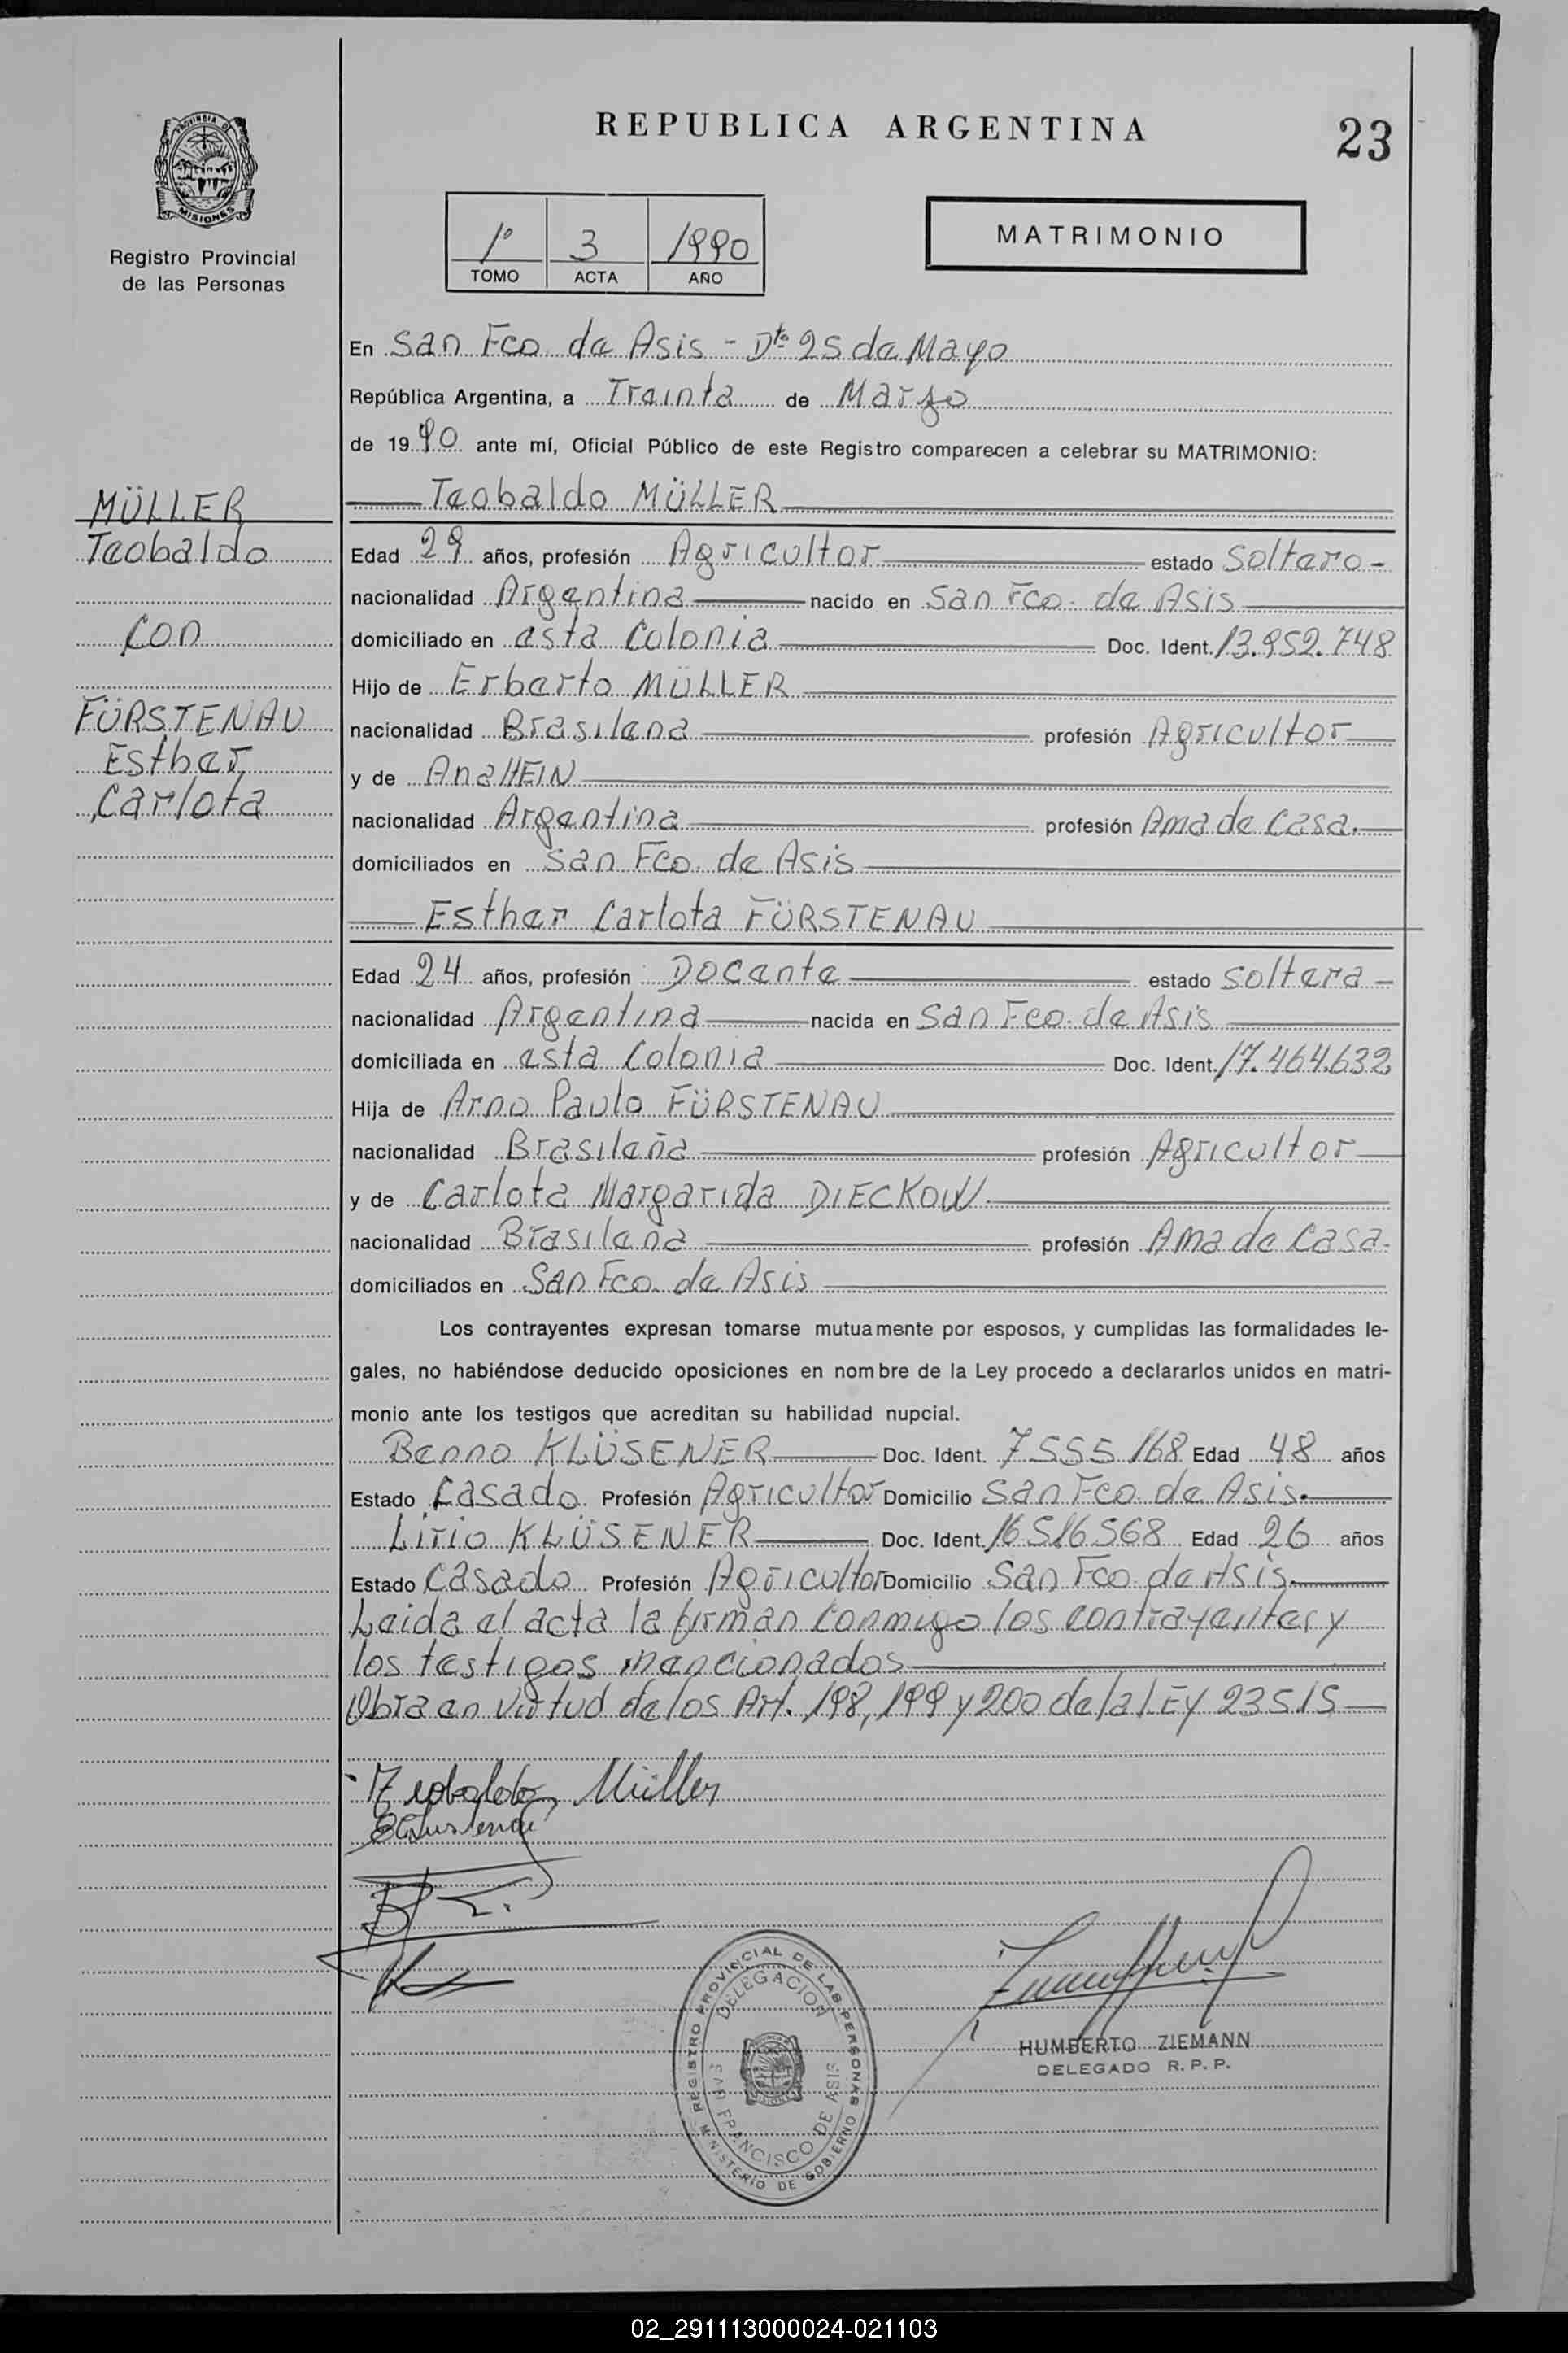 REPUBLICA ARGENTINA
23
PROVINCIA DE MISIONES
Registro Provincial
de las Personas
1º 3 1990
TOMO ACTA AÑO
MATRIMONIO
En San Fco. de Asis - Dto 25 de Mayo
República Argentina, a Treinta de Marzo
de 1990 ante mí, Oficial Público de este Registro comparecen a celebrar su MATRIMONIO:
MÜLLER
Teobaldo
con
FÜRSTENAU
Esther
Carlota
Teobaldo MÜLLER
Edad 29 años, profesión Agricultor estado Soltero -
nacionalidad Argentina nacido en San Fco. de Asis
domiciliado en esta Colonia Doc. Ident. 13.952.748
Hijo de Erberto MÜLLER
nacionalidad Brasilena profesión Agricultor
y de Ana HEIN
nacionalidad Argentina profesión Ama de Casa.
domiciliados en San Fco. de Asis
Esther Carlota FÜRSTENAU
Edad 24 años, profesión Docente estado Soltera -
nacionalidad Argentina nacida en San Fco. de Asis
domiciliada en esta Colonia Doc. Ident. 17.464.632
Hija de Arno Paulo FÜRSTENAU
nacionalidad Brasileña profesión Agricultor
y de Carlota Margarida DIECKOW
nacionalidad Brasilena profesión Ama de Casa.
domiciliados en San Fco. de Asis
Los contrayentes expresan tomarse mutuamente por esposos, y cumplidas las formalidades le-
gales, no habiéndose deducido oposiciones en nombre de la Ley procedo a declararlos unidos en matri-
monio ante los testigos que acreditan su habilidad nupcial.
Benno KLÜSENER Doc. Ident. 7555168 Edad 48 años
Estado Casado Profesión Agricultor Domicilio San Fco. de Asis.
Lirio KLÜSENER Doc. Ident. 16516568 Edad 26 años
Estado Casado Profesión Agricultor Domicilio San Fco. de Asis.
Leida el acta la firman conmigo los contrayentes y
los testigos mencionados
Obra en virtud de los Art. 198, 199 y 200 de la LEY 23515
Teobaldo Müller
REGISTRO PROVINCIAL DE LAS PERSONAS
DELEGACION
SAN FRANCISCO DE ASIS
MINISTERIO DE GOBIERNO
HUMBERTO ZIEMANN
DELEGADO R. P. P.
02_291113000024-021103